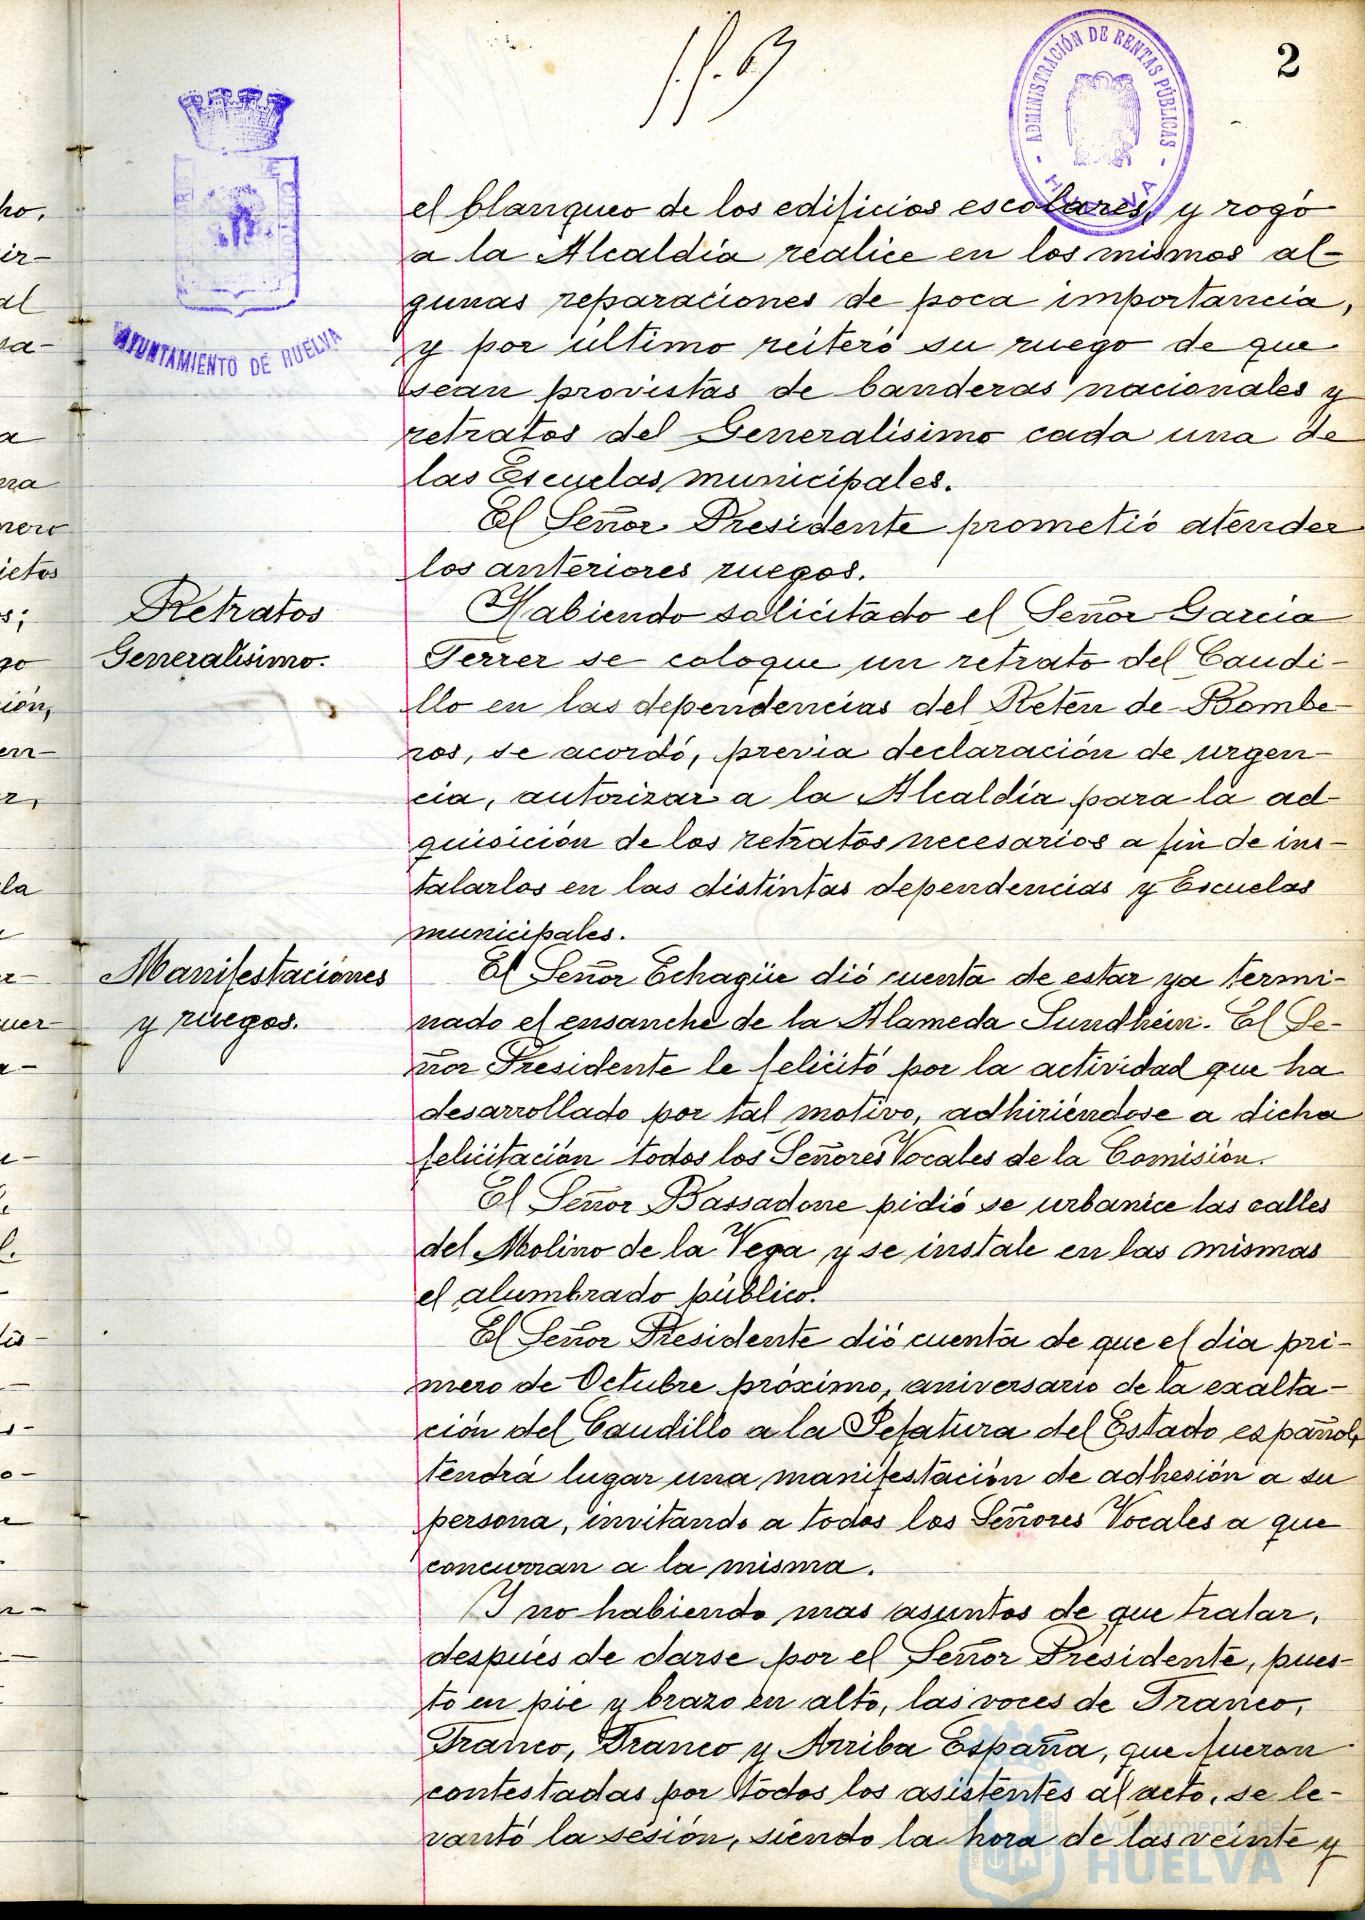 2
ADMINISTRACIÓN DE RENTAS PÚBLICAS
HUELVA
AYUNTAMIENTO DE HUELVA
el blanqueo de los edificios escolares, y rogó
a la Alcaldía realice en los mismos al-
gunas reparaciones de poca importancia,
y por último reiteró su ruego de que
sean provistas de banderas nacionales y
retratos del Generalísimo cada una de
las Escuelas municipales.
El Señor Presidente prometió atender
los anteriores ruegos.
Retratos
Generalísimo.
Habiendo solicitado el Señor García
Ferrer se coloque un retrato del Caudi-
llo en las dependencias del Retén de Bombe-
ros, se acordó, previa declaración de urgen-
cia, autorizar a la Alcaldía para la ad-
quisición de los retratos necesarios a fin de ins-
talarlos en las distintas dependencias y Escuelas
municipales.
Manifestaciones
y ruegos.
El Señor Echagüe dió cuenta de estar ya termi-
nado el ensanche de la Alameda Sundhein. El Se-
ñor Presidente le felicitó por la actividad que ha
desarrollado por tal motivo, adhiriéndose a dicha
felicitación todos los Señores Vocales de la Comisión.
El Señor Bassadone pidió se urbanice las calles
del Molino de la Vega y se instale en las mismas
el alumbrado público.
El Señor Presidente dió cuenta de que el dia pri-
mero de Octubre próximo, aniversario de la exalta-
ción del Caudillo a la Jefatura del Estado español,
tendrá lugar una manifestación de adhesión a su
persona, invitando a todos los Señores Vocales a que
concurran a la misma.
Y no habiendo mas asuntos de que tratar,
después de darse por el Señor Presidente, pues-
to en pie y brazo en alto, las voces de Franco,
Franco, Franco y Arriba España, que fueron
contestadas por todos los asistentes al acto, se le-
vantó la sesión, siendo la hora de las veinte y
Ayuntamiento de
HUELVA